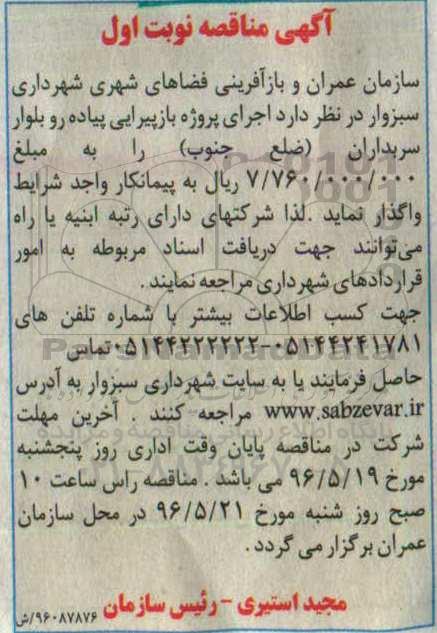 آگهی مناقصه نوبت اول
سازمان عمران و بازآفرینی فضاهای شهری شهرداری
سبزوار در نظر دارد اجرای پروژه بازپیرایی پیاده رو بلوار
سربداران (ضلع جنوب) را به مبلغ
۷/۷۶۰/۰۰۰/۰۰۰ ریال به پیمانکار واجد شرایط
واگذار نماید .لذا شرکتهای دارای رتبه ابنیه یا راه
می‌توانند جهت دریافت اسناد مربوطه به امور
قراردادهای شهرداری مراجعه نمایند.
جهت کسب اطلاعات بیشتر با شماره تلفن های
۰۵۱۴۴۲۴۱۷۸۱-۰۵۱۴۴۲۲۲۲۲۲تماس
حاصل فرمایند یا به سایت شهرداری سبزوار به آدرس
www.sabzevar.ir مراجعه کنند . آخرین مهلت
شرکت در مناقصه پایان وقت اداری روز پنجشنبه
مورخ ۹۶/۵/۱۹ می باشد . مناقصه راس ساعت ۱۰
صبح روز شنبه مورخ ۹۶/۵/۲۱ در محل سازمان
عمران برگزار می گردد .
مجید استیری - رئیس سازمان
۹۶۰۸۷۸۷۶/ش